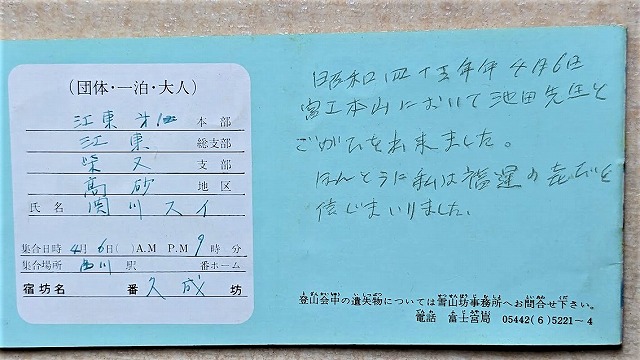 (団体・一泊・大人)
江東 本部
江東 総支部
柴又 支部
高砂 地区
氏名 関川スイ
集合日時 4月6日( )A.M P.M 9時 分
集合場所 西川駅 番ホーム
宿坊名 番 久成 坊
昭和四十五年 4月6日
富士本山において池田先生と
ごがひを出来ました。
ほんとうに私は福運の
信じまいりました。
登山会中の遺失物については雪山坊事務所へお問合せ下さい。
電話 富士宮局 05442(6)5221~4